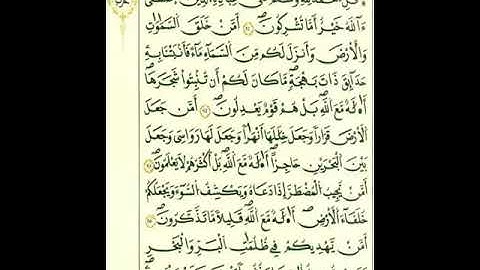 قُلِ الْحَمْدُ لِلَّهِ وَسَلَامٌ عَلَىٰ عِبَادِهِ الَّذِينَ اصْطَفَىٰ
ءَآللَّهُ خَيْرٌ أَمَّا يُشْرِكُونَ ۝ أَمَّنْ خَلَقَ السَّمَٰوَٰتِ
وَالْأَرْضَ وَأَنزَلَ لَكُم مِّنَ السَّمَآءِ مَآءً فَأَنۢبَتْنَا بِهِ
حَدَآئِقَ ذَاتَ بَهْجَةٍ مَّا كَانَ لَكُمْ أَن تُنۢبِتُوا شَجَرَهَآ
أَءِلَٰهٌ مَّعَ اللَّهِ بَلْ هُمْ قَوْمٌ يَعْدِلُونَ ۝ أَمَّن جَعَلَ
الْأَرْضَ قَرَارًا وَجَعَلَ خِلَٰلَهَآ أَنْهَٰرًا وَجَعَلَ لَهَا رَوَٰسِيَ وَجَعَلَ
بَيْنَ الْبَحْرَيْنِ حَاجِزًا أَءِلَٰهٌ مَّعَ اللَّهِ بَلْ أَكْثَرُهُمْ لَا يَعْلَمُونَ ۝
أَمَّن يُجِيبُ الْمُضْطَرَّ إِذَا دَعَاهُ وَيَكْشِفُ السُّوٓءَ وَيَجْعَلُكُمْ
خُلَفَآءَ الْأَرْضِ أَءِلَٰهٌ مَّعَ اللَّهِ قَلِيلًا مَّا تَذَكَّرُونَ ۝
أَمَّن يَهْدِيكُمْ فِي ظُلُمَٰتِ الْبَرِّ وَالْبَحْرِ